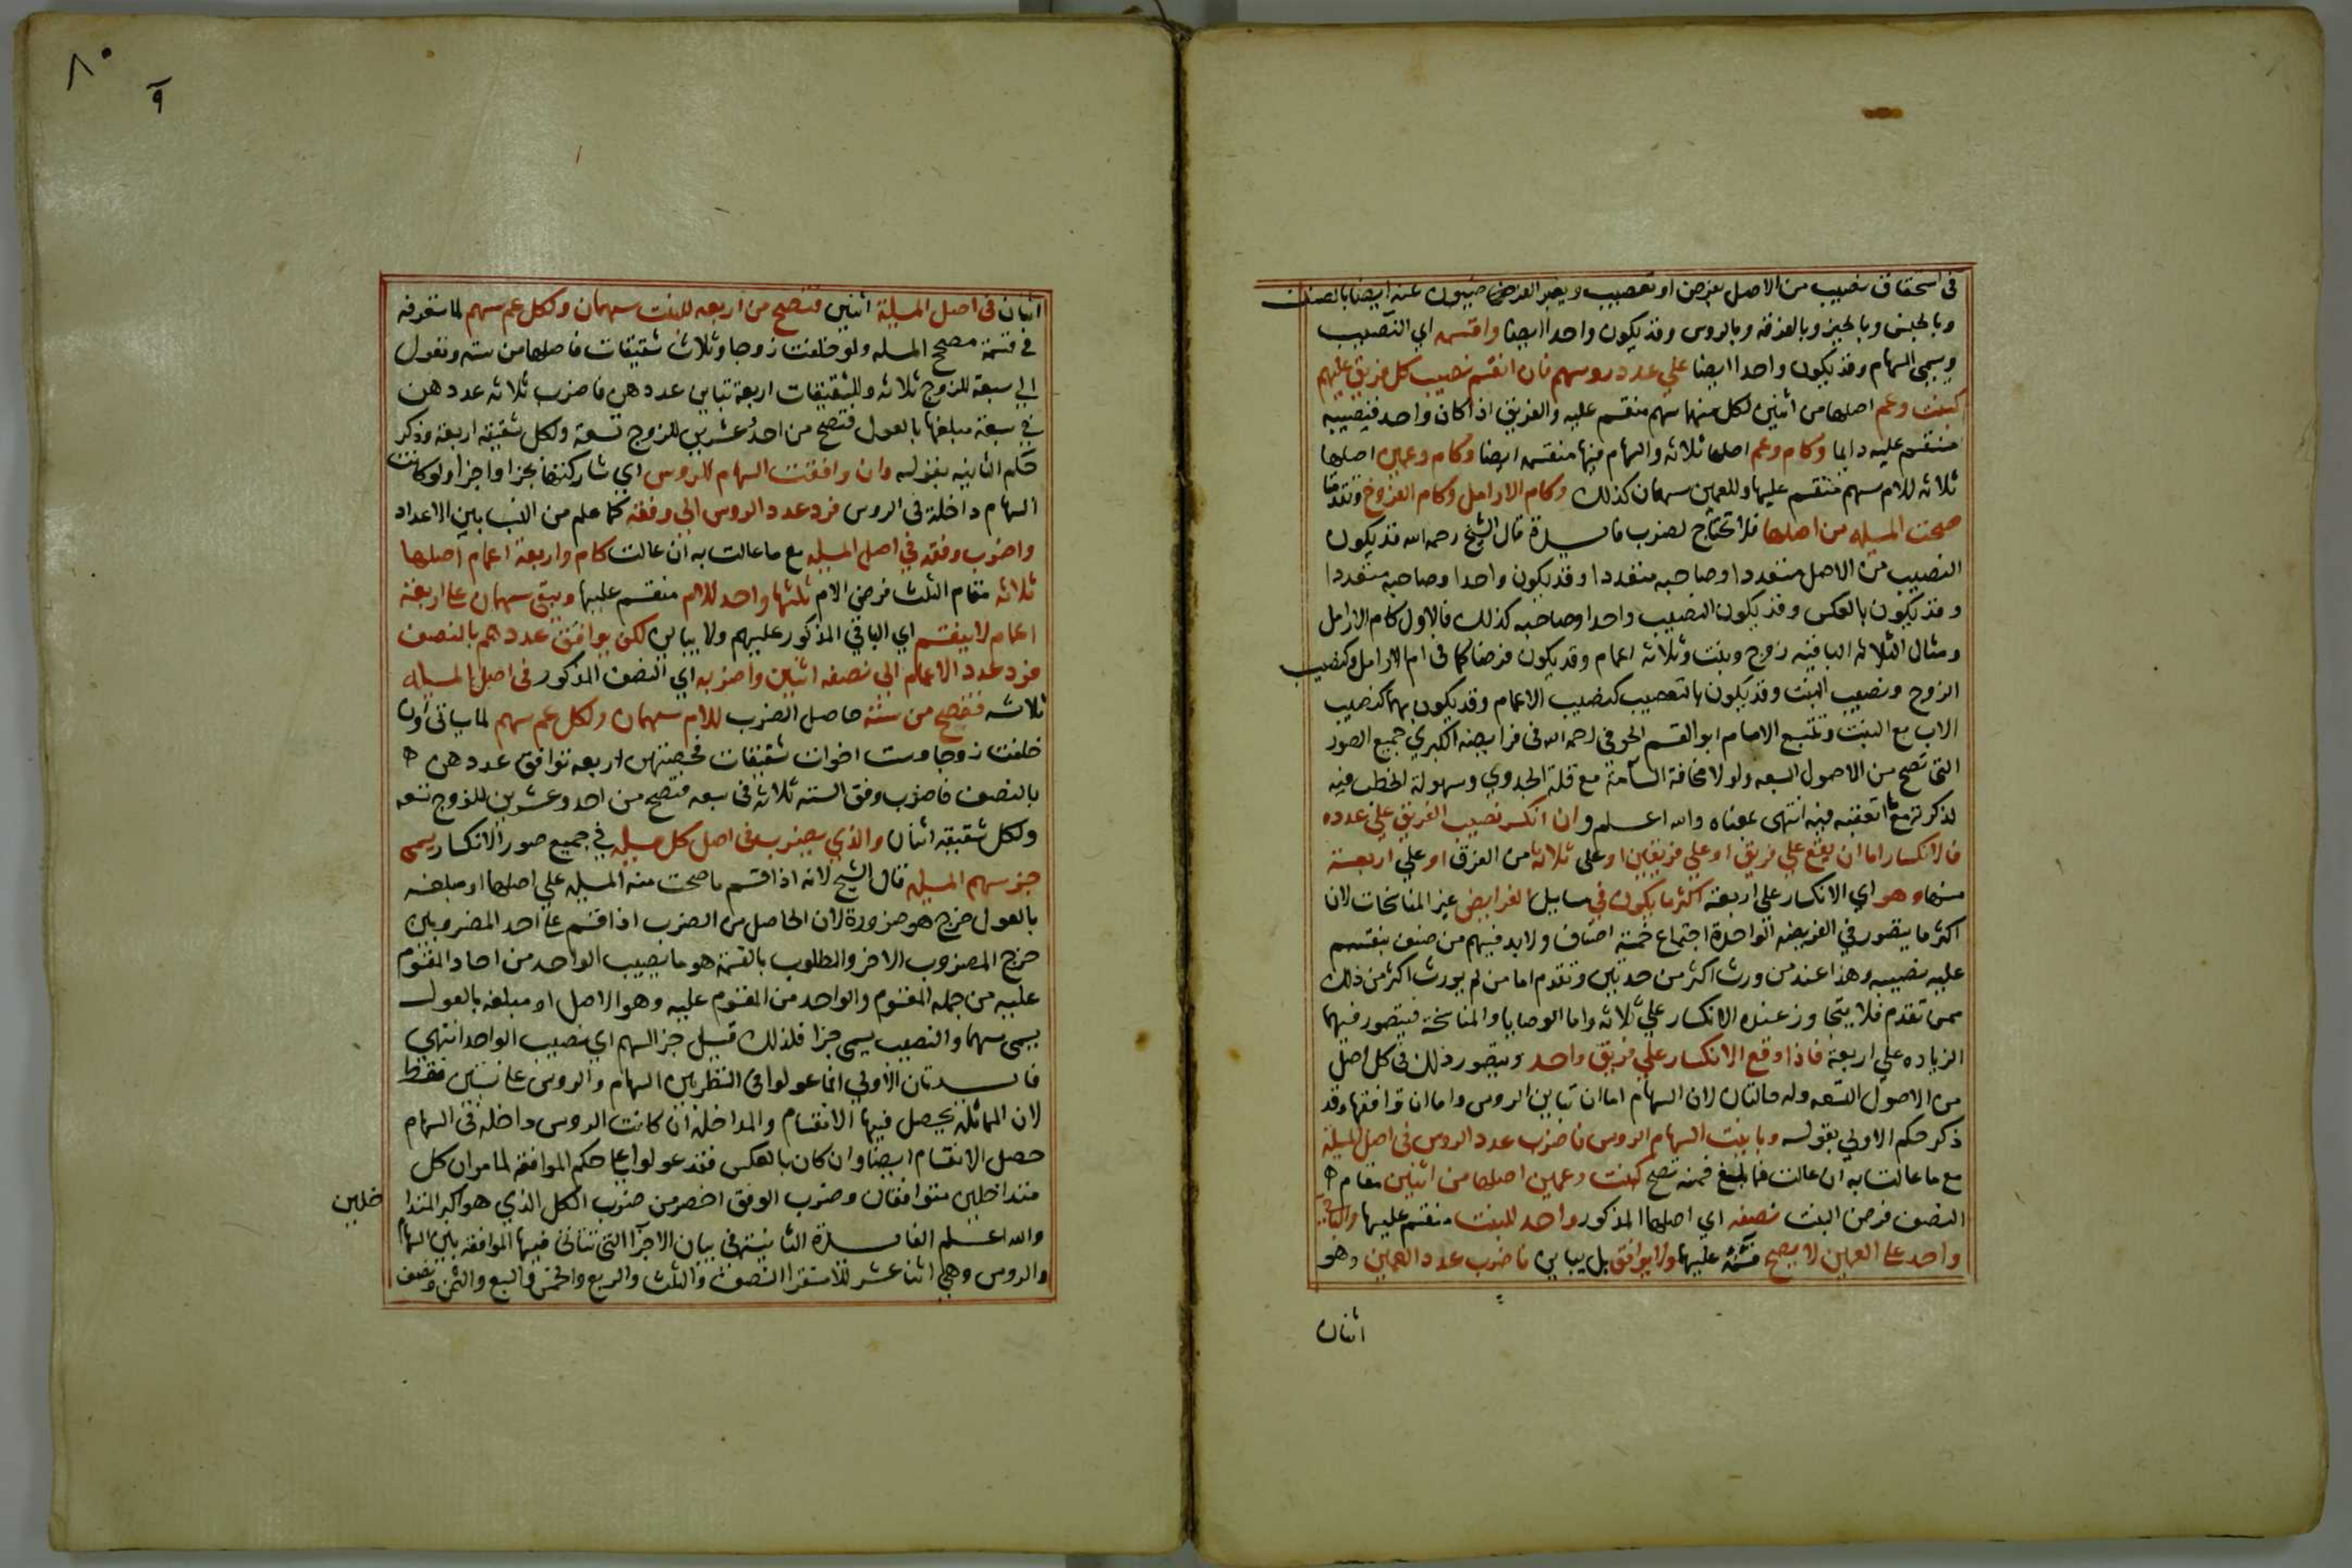 في استحقاق نصيب من الاصل بفرض او تعصيب ويعبر الفرضيون عنه ايضا بالصنف
وبالجنس وبالحيز وبالفرقه وبالروس وقد يكون واحدا ايضا واقسمه اي النصيب
ويسمى السهام وقد يكون واحدا ايضا علي عدد روسهم فان انقسم نصيب كل فريق عليهم
كبنت وعم اصلها من اثنين لكل منهما سهم منقسم عليه والفريق اذا كان واحد فنصيبه
منقسم عليه دايما وكام وعم اصلها ثلاثه والسهام فيها منقسمه ايضا وكام وعمين اصلها
ثلاثه للام سهم منقسم عليها وللعمين سهمان كذلك وكام الارامل وكام الفروخ وتقدمتا
صحت المسيله من اصلها فلا تحتاج لضرب فايدة قال الشيخ رحمه الله قد يكون
النصيب من الاصل متعددا وصاحبه متعددا وقد يكون واحدا وصاحبه متعددا
وقد يكون بالعكس وقد يكون النصيب واحدا وصاحبه كذلك فالاول كام الارامل
ومثال الثلاثه الباقيه زوج وبنت وثلاثه اعمام وقد يكون فرضا كما في ام الارامل وكنصيب
الزوج ونصيب البنت وقد يكون بالتعصيب كنصيب الاعمام وقد يكون بهما كنصيب
الاب مع البنت وتتبع الامام ابو القسم الحوفي رحمه الله في فرايضه الكبري جميع الصور
التي تصح من الاصول السبعه ولولا مخافة السآمة مع قلة الجدوي وسهولة الخطب فيه
لذكرته مع اتفقته فيه انتهى عفناه والله اعلم وان انكسر نصيب الفريق علي عدده
فالانكسار اما ان يقع علي فريق او علي فريقين او على ثلاثة من الفرق او علي اربعة
منها وهو اي الانكسار علي اربعة اكثر ما يكون في مسايل الفرايض غير المناسخات لان
اكثر ما يتصور في الفريضه الواحدة اجتماع خمسة اصناف ولا بد فيهم من صنف ينقسم
عليه نصيبه وهذا عند من ورث اكثر من جدتين وتقدم اما من لم يورث اكثر من ذلك
ممن تقدم فلا يتجاوز عنده الانكسار علي ثلاثه واما الوصايا والمناسخة فيتصور فيهما
الزياده علي اربعة فاذا وقع الانكسار علي فريق واحد ويتصور ذلك في كل اصل
من الاصول التسعه وله حالتان لان السهام اما ان تباين الروس واما ان توافقها وقد
ذكر حكم الاولي بقوله وباينت السهام الروس فاضرب عدد الروس في اصل المسيلة
مع ما عالت به ان عالت فما بلغ فمنه تصح كبنت وعمين اصلها من اثنين مقام
النصف فرض البنت نصفه اي اصلها المذكور واحد للبنت منقسم عليها والباقي
واحد علي العمين لا يصح قسمته عليهما ولا يوافق بل يباين فاضرب عدد العمين وهو
اثنان
٨٠
٩
اثنان في اصل المسيلة اثنين فتصح من اربعه للبنت سهمان ولكل عم سهم لما ستعرفه
في قسمة مصحح المسله ولو خلفت زوجا وثلاث شقيقات فاصلها من سته وتعول
الي سبعة للزوج ثلاثه وللشقيقات اربعة تباين عددهن فاضرب ثلاثه عددهن
في سبعة مبلغها بالعول فتصح من احد وعشرين للزوج تسعة ولكل شقيقه اربعة وذكر
حكم الثانيه بقوله وان وافقت السهام الروس اي شاركتها بجزا واجزا ولو كانت
السهام داخلة في الروس فرد عدد الروس الي وفقه كما علم من النسب بين الاعداد
واضرب وفقه في اصل المسيله مع ما عالت به ان عالت كام واربعة اعمام اصلها
ثلاثه مقام الثلث فرض الام ثلثها واحد للام منقسم عليها ويبقى سهمان علي اربعة
اعمام لا ينقسم اي الباقي المذكور عليهم ولا يباين لكن يوافق عددهم بالنصف
فرد عدد الاعمام الي نصفه اثنين واضربه اي النصف المذكور في اصل المسيله
ثلاثه فتصح من سته حاصل الضرب للام سهمان ولكل عم سهم لما سياتي اوان
خلفت زوجا وست اخوات شقيقات فحصتهن اربعه توافق عددهن
بالنصف فاضرب وفق السته ثلاثه في سبعه فتصح من احد وعشرين للزوج تسعه
ولكل شقيقه اثنان والذي يضرب في اصل كل مسيله في جميع صور الانكسار يسمى
جزء سهم المسيله قال الشيخ لانه اذا قسم ما صحت منه المسيله علي اصلها او مبلغه
بالعول خرج هو ضرورة لان الحاصل من الضرب اذا قسم علي احد المضروبين
خرج المضروب الاخر والمطلوب بالقسمة هو ما يصيب الواحد من احاد المقسوم
عليه من جمله المقسوم والواحد من المقسوم عليه وهو الاصل او مبلغه بالعول
يسمى سهما والنصيب يسمى جزا فلذلك قيل جزء السهم اي نصيب الواحد انتهى
فايدتان الاولي انما عولوا في النظر بين السهام والروس علي نسبتين فقط
لان المماثلة يحصل فيها الانقسام والمداخلة ان كانت الروس داخله في السهام
حصل الانقسام ايضا وان كان بالعكس فقد عولوا علي حكم الموافقة لما مر ان كل
متداخلين متوافقان وضرب الوفق اخصر من ضرب الكل الذي هو اكبر المتدا
خلين
والله اعلم الفايدة الثانية في بيان الاجزا التي تتاتى فيها الموافقه بين السهام
والروس وهي اثنا عشر للاستقرا النصف والثلث والربع والخمس والسبع والثمن ونصف